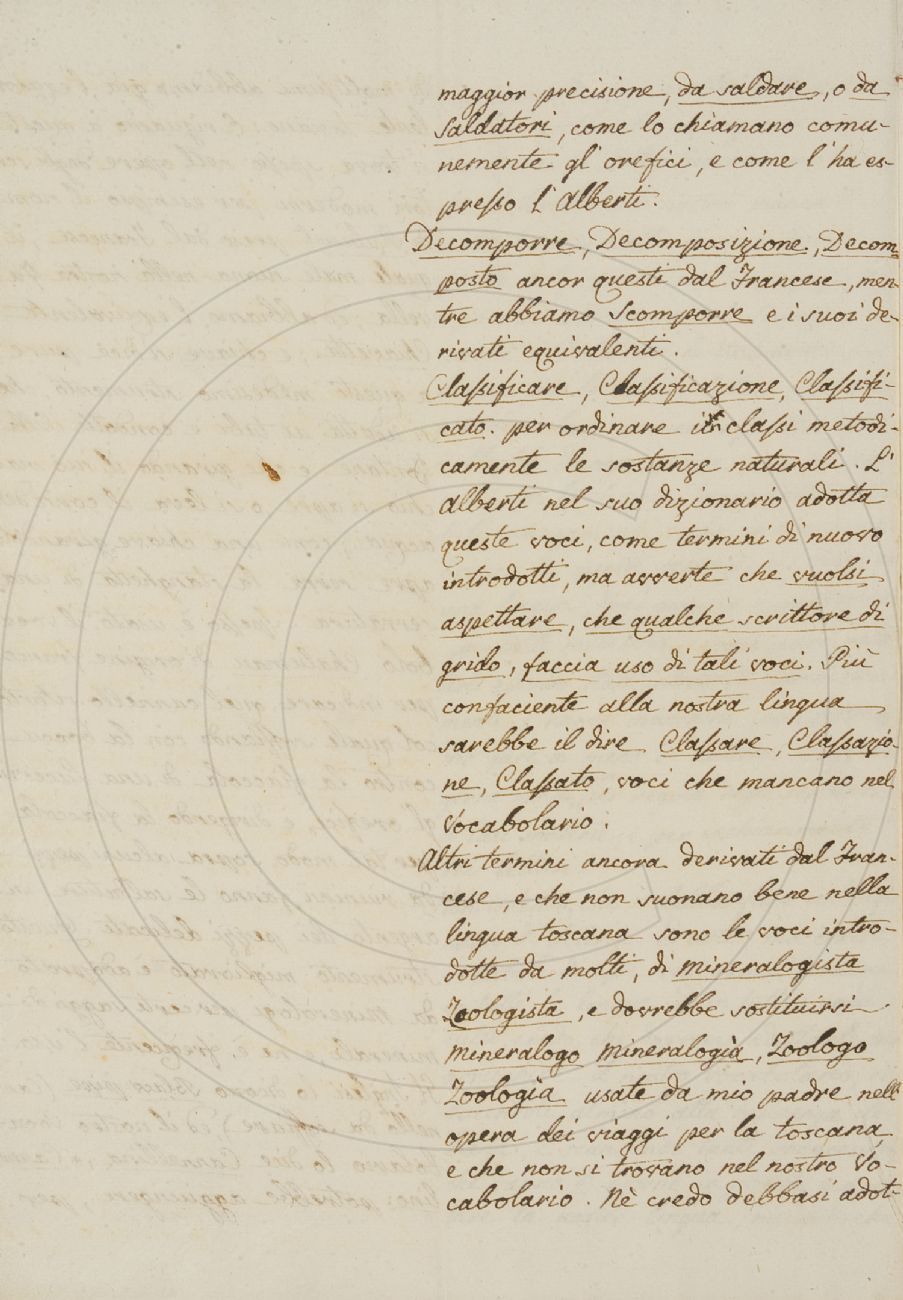 maggior precisione, da saldare, o da
saldatori, come lo chiamano comu-
nemente gl' orefici, e come l' ha es-
presso l' Alberti.
Decomporre, Decomposizione, Decom-
posto ancor questi dal Francese, men
tre abbiamo Scomporre e i suoi de-
rivati equivalenti.
Classificare, Classificazione, Classifi-
cato. per ordinare in classi metodi-
camente le sostanze naturali. L'
alberti nel suo dizionario adotta
queste voci, come termini di nuovo
introdotti, ma avverte che vuolsi
aspettare, che qualche scrittore di
grido, faccia uso di tali voci. Più
confaciente alla nostra lingua
sarebbe il dire Classare, Classazio-
ne, Classato, voci che mancano nel
Vocabolario.
Altri termini ancora derivati dal Fran-
cese, e che non suonano bene nella
lingua toscana sono le voci intro-
dotte da molti, di mineralogista
Zoologista, e dovrebbe sostituirsi
mineralogo mineralogìa, Zoologo
Zoologìa usate da mio padre nell'
opera dei viaggi per la toscana,
e che non si trovano nel nostro Vo-
cabolario. Nè credo debbasi adot-